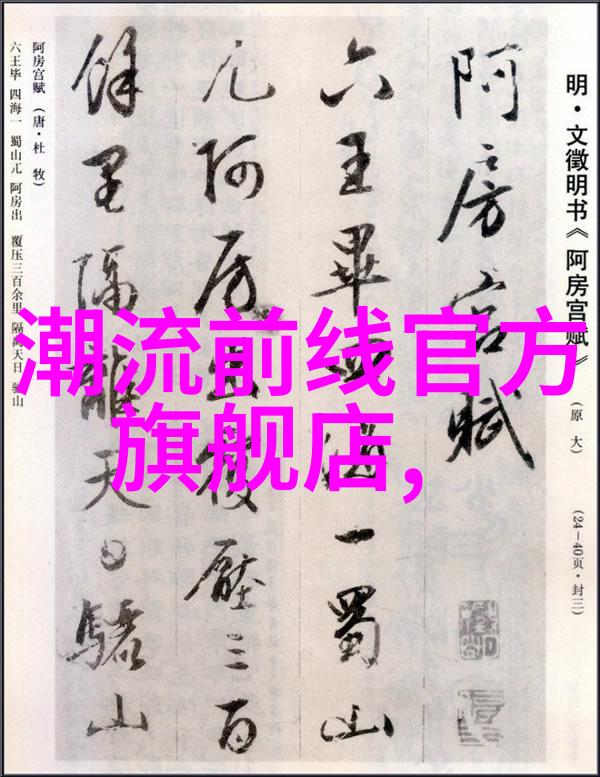 明·文徵明书《阿房宫赋》(原大)(24—40页·封三)
阿房宫賦
六王畢四海一蜀山
兀阿房出覆壓三百
餘里隔離天日驪山
阿房宫赋(唐·杜 牧)
六王毕 四海一 蜀山兀 阿房出 覆压三百余里 隔离天日 骊山
潮流前线官方
旗舰店,